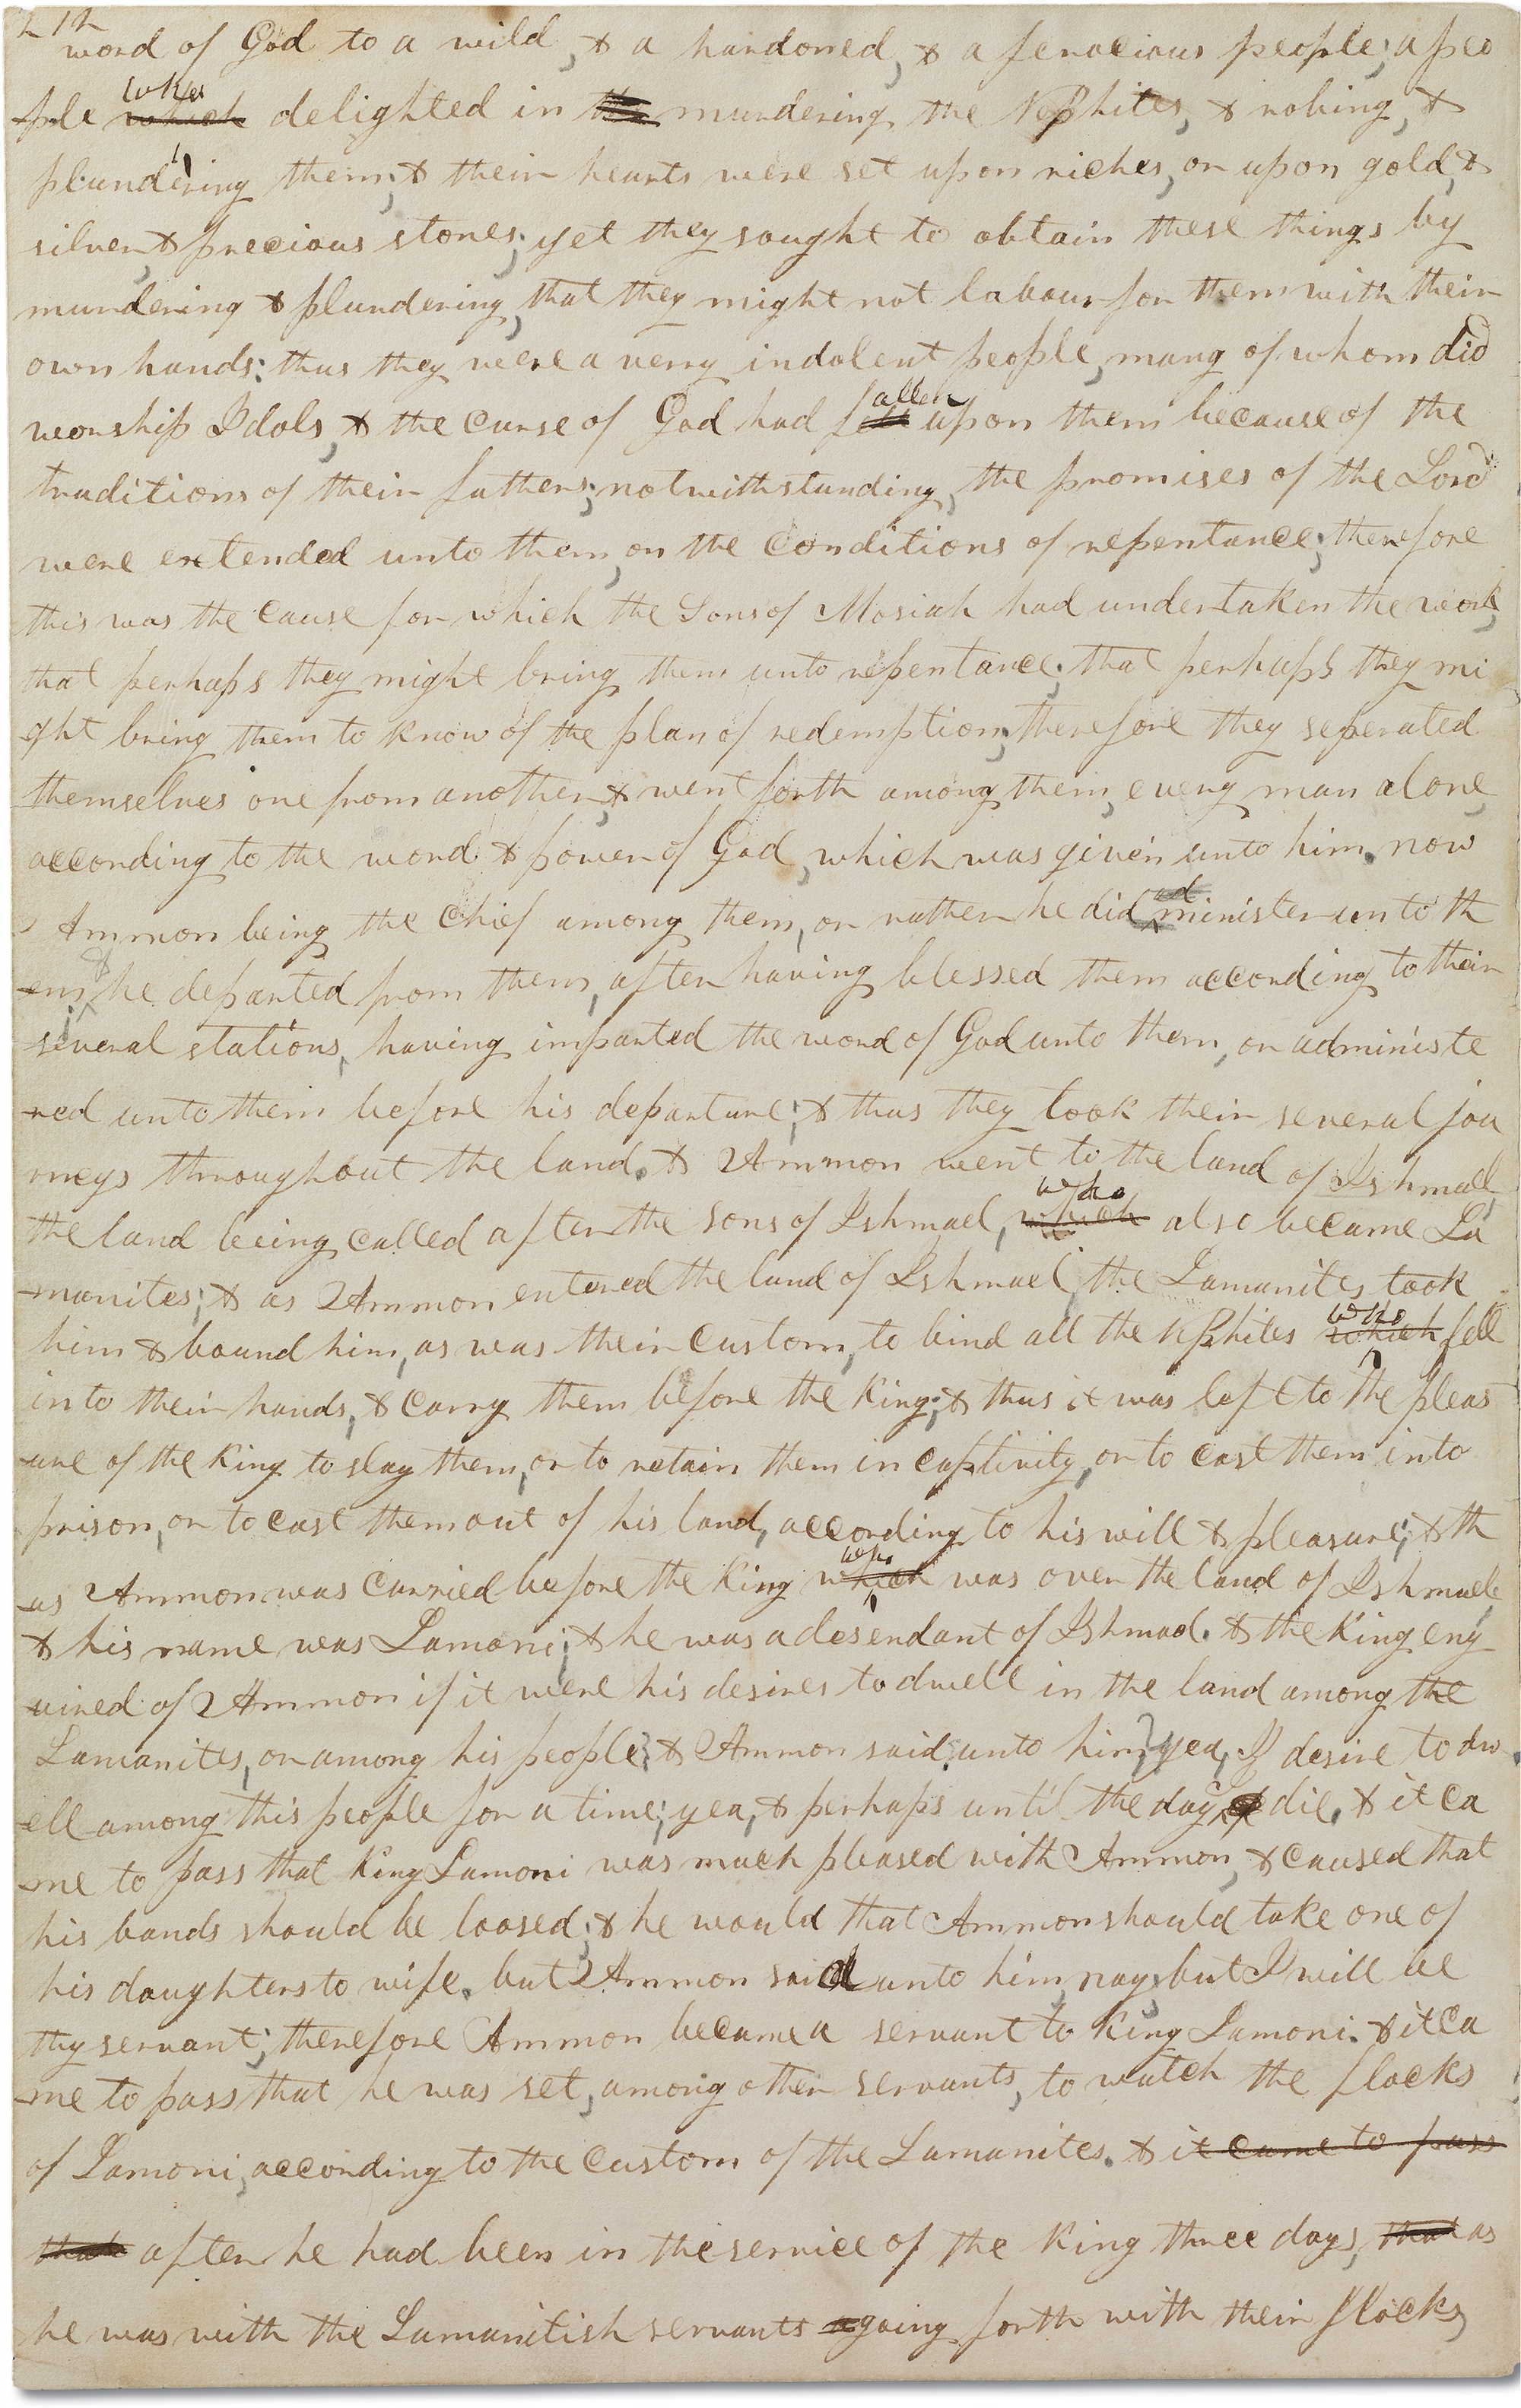 word of God to a wild, & a hardoned, & a ferocious people; a peo
ple which who delighted in the murdering the Nephites, & robing, &
plundering them; & their hearts were set upon riches, or upon gold, &
silver, & precious stones; yet they sought to obtain these things by
murdering & plundering, that they might not labour for them with their
own hands: thus they were a very indolent people, many of whom did
worship Idols, & the curse of God had fell fallen upon them because of the
traditions of their fathers; notwithstanding, the promises of the Lord
were extended unto them, on the conditions of repentance; therefore
this was the cause for which the Sons of Mosiah had undertaken the work,
that perhaps they might bring them unto repentance; that perhaps they mi
ght bring them to know of the plan of redemption; therefore they seperated
themselves one from another, & went forth among them, every man alone,
according to the word & power of God, which was given unto him. now
Ammon being the chief among them, or rather he did administer unto th
em, & he departed from them, after having blessed them according to their
several stations, having imparted the word of God unto them, or administe
red unto them before his departure; & thus they took their several jou
rneys throughout the land. & Ammon went to the land of Ishmael,
the land being called after the sons of Ishmael, which who also became La
manites; & as Ammon entered the land of Ishmael, the Lamanites took
him & bound him, as was their custom, to bind all the Nephites which who fell
into their hands, & carry them before the King; & thus it was left to the pleas
ure of the King to slay them, or to retain them in captivity, or to cast them into
prison, or to cast them out of his land, according to his will & pleasure; & th
us Ammon was carried before the King which who was over the land of Ishmael,
& his name was Lamoni; & he was a desendant of Ishmael. & the King enq
uired of Ammon if it were his desires to dwell in the land among the
Lamanites, or among his people? & Ammon said unto him, yea, I desire to dw
ell among this people for a time; yea, & perhaps until the day I die. & it ca
me to pass that King Lamoni was much pleased with Ammon, & caused that
his bands should be loosed; & he would that Ammon should take one of
his daughters to wife. but Ammon said unto him, nay, but I will be
thy servant; therefore Ammon became a servant to King Lamoni. & it ca
me to pass that he was set, among other servants, to watch the flocks
of Lamoni, according to the custom of the Lamanites. & it came to pass
that after he had been in the service of the King three days, that as
he was with the Lamanitish servants a going forth with their flocks,